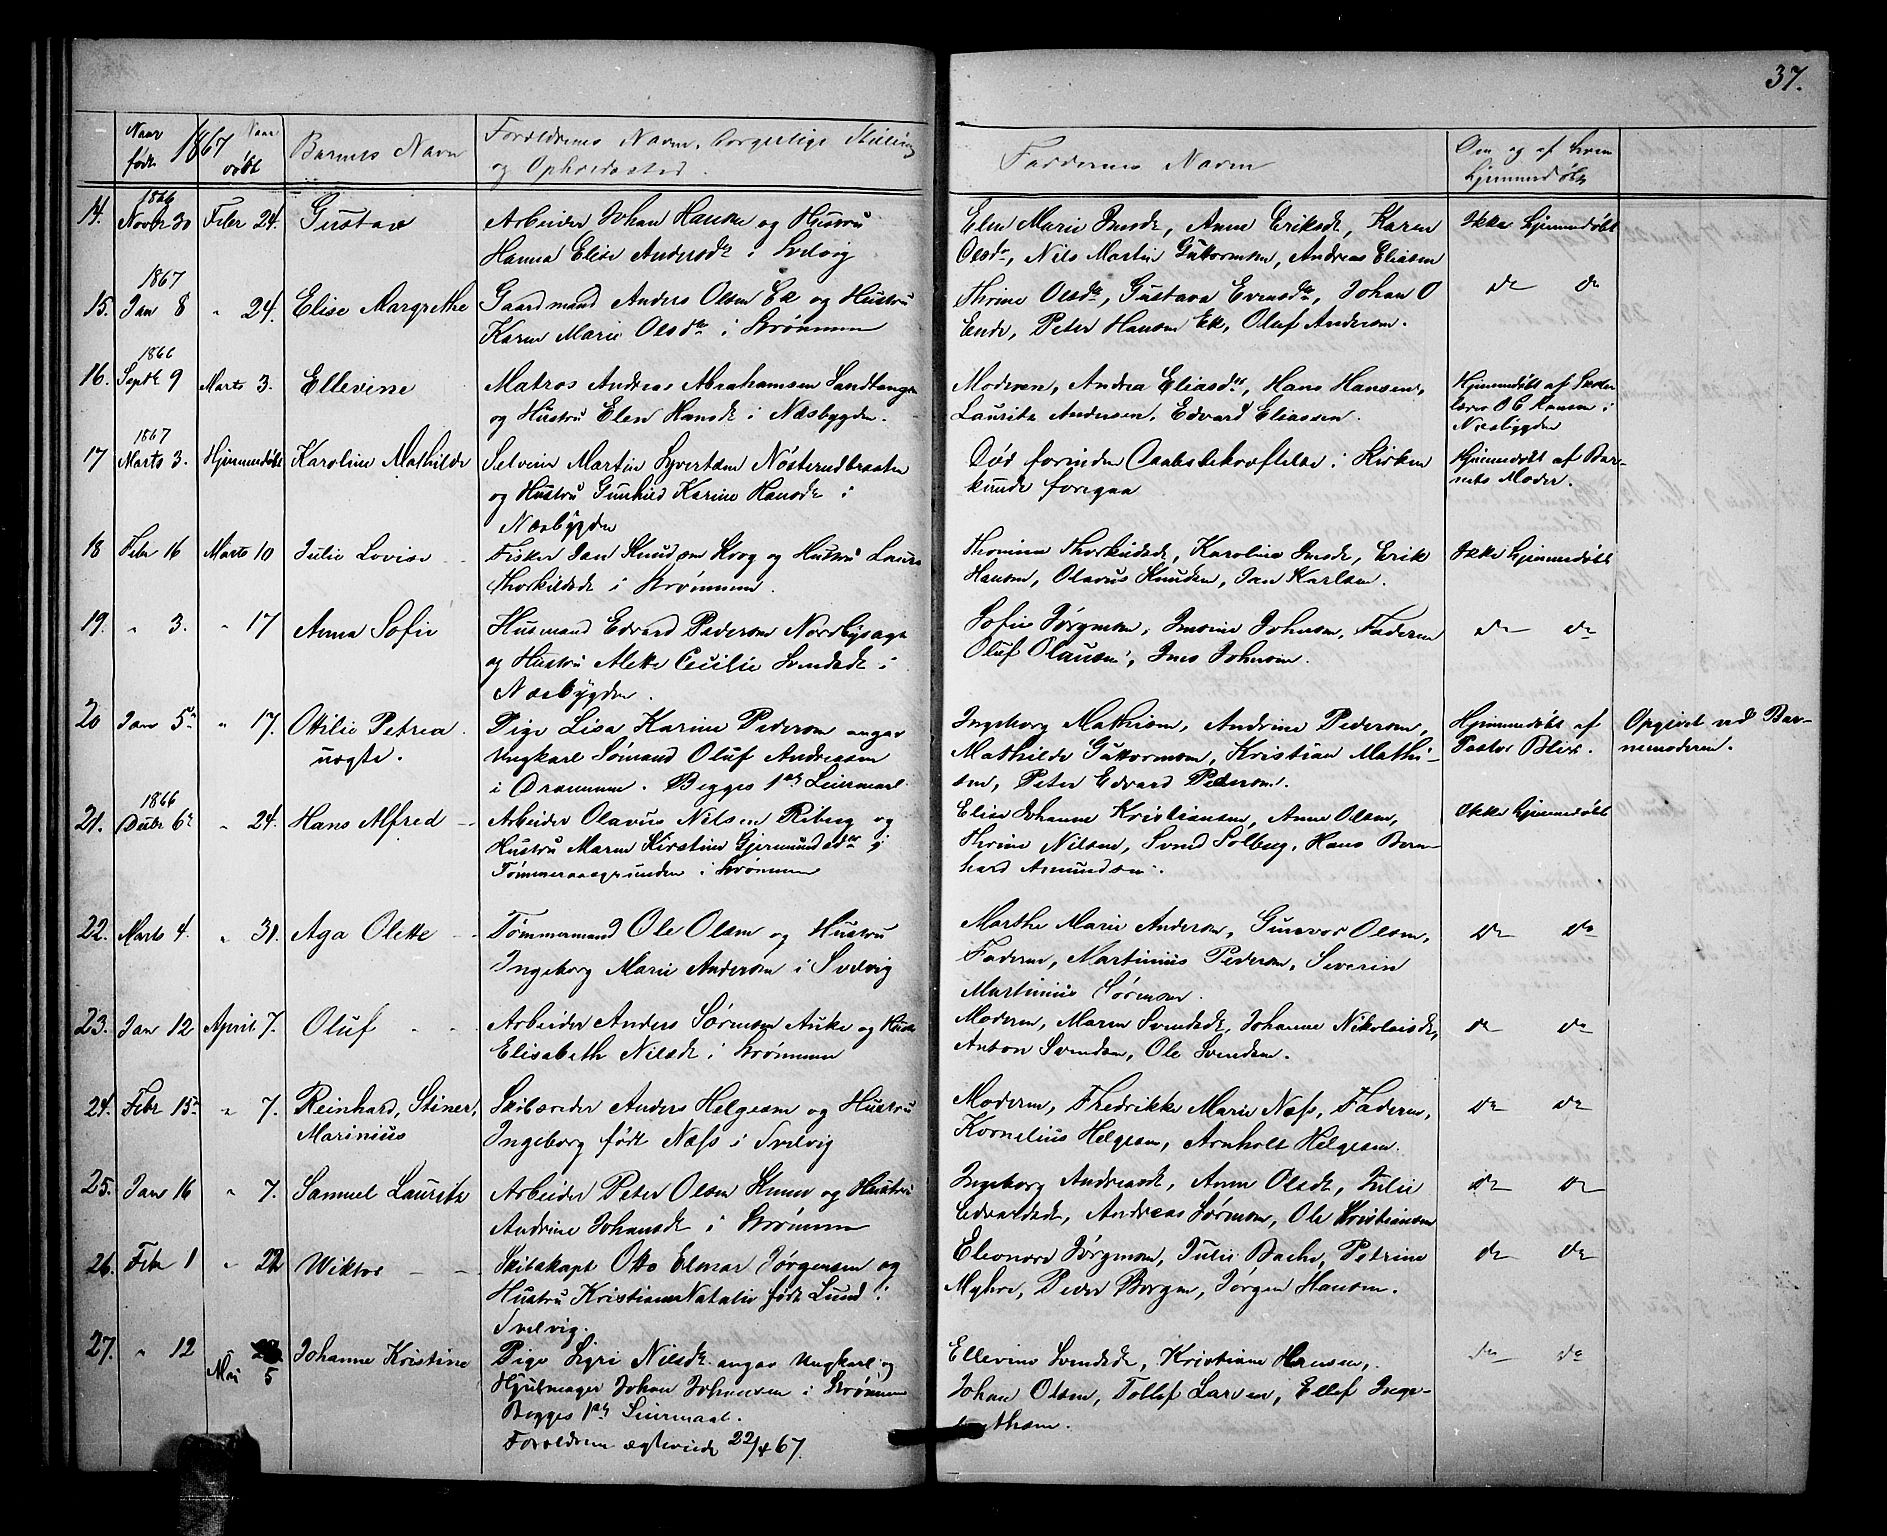 37.
Naar født 1867 Naar døbt Barnets Navn Forældrenes Navn, borgerlige Stilling
og Opholdssted.
Faddernes Navne
Om og af hvem
hjemmedøbt
14. 1866 Novbr 30 Febr 24. Gustav Arbeider Johan Hansen og Hustru
Hanna Elise Andersdt i Svelvig
Elen Marie Jensdt, Anne Eriksdt, Karen
Olsdtr, Nils Martin Guttormsen, Andreas Eliasen
Ikke hjemmedøbt
15. 1867 Jan 8 " 24. Elise Margrethe Gaardmand Anders Olsen Ek og Hustru
Karen Marie Olsdtr i Strømmen
Thrine Olsdtr, Gustava Evensdtr, Johan O
Ende, Peter Hansen Ek, Oluf Andersen.
do do
16. 1866 Septb 9 Marts 3. Ellevine Matros Andreas Abrahamsen Sandtangen
og Hustru Elen Hansdt i Næsbygden.
Moderen, Andrea Eliasdtr, Hans Hansen,
Lauritz Andersen, Edvard Eliassen.
Hjemmedøbt af
lærer O C Hansen i
Næsbygden
17 1867 Marts 3. Hjemmedøbt Karoline Mathilde Selveier Martin Syvertsen Nøsterudbraaten
og Hustru Gunhild Karine Hansdt i
Næsbygden
Død forinden Daabsbekræftelse i Kirken
kunde foregaa
Hjemmedøbt af Bar-
nets Moder.
18 Febr 16 Marts 10 Julie Lovise Fisker Jan Knudsen Krog og Hustru Laura
Thorkildsdt i Strømmen.
Thomine Thorkildsdt, Karoline Jensdt, Erik
Hansen, Olavus Knudsen, Jan Karlsen.
Ikke hjemmedøbt
19. " 3. " 17 Anna Sofie Husmand Edvard Pedersen Nordbysage
og Hustru Alette Cecilie Svendsdt i
Næsbygden.
Sofie Jørgensen, Jensine Johnsen, Faderen
Oluf Olausen, Jens Johnsen.
do do
20 Jan 5te " 17. Ottilie Petrea
uægte.
Pige Lisa Karine Pedersen angav
Ungkarl Sømand Oluf Andreasen
i Drammen. Begges 1ste Leiermaal
Ingeborg Mathisen, Andrine Pedersen,
Mathilde Guttormsen, Kristian Mathi-
sen, Peter Edvard Pedersen.
Hjemmedøbt af
Pastor Blix.
Opgivet ved Bar-
nemoderen.
21. 1866 Decbr 6te " 24. Hans Alfred Arbeider Olavus Nilsen Riberg og
Hustru Maren Kirstine Gjermundsdtr i
Tømmeraasgrunden i Strømmen
Elise Johanne Kristiansen, Anne Olsen,
Thrine Nilsen, Svend Solberg, Hans Bern-
hard Amundsen.
Ikke hjemmedøbt
22. Marts 4. " 31. Aga Olette Tømmermand Ole Olsen og Hustru
Ingeborg Marie Andersen i Svelvig
Marthe Marie Andersen, Gunevor Olsen,
Faderen, Martinius Pedersen, Severin
Martinius Sørensen.
do do
23. Jan 12 April 7. Oluf Arbeider Anders Sørensen Auke og Hust
Elisabeth Nilsdt i Strømmen
Moderen, Maren Svendsdt, Johanne Nikolaisdt,
Anton Svendsen, Ole Svendsen.
do do
24. Febr 15de " 7. Reinhard, Steiner,
Marinius
Skibsreder Anders Helgesen og Hustru
Ingeborg født Næss i Svelvig
Moderen, Fredrikke Marie Næss, Faderen,
Kornelius Helgesen, Arnholt Helgesen.
do do
25. Jan 16 " 7. Samuel Lauritz Arbeider Peter Olsen og Hustru
Andrine Johansdt i Strømmen
Ingeborg Andreasdt, Anne Olsdt, Julie
Edvardsdt, Andreas Sørensen, Ole Kristiansen
do do
26. Febr 1 " 22 Wiktor Skibskapt Otto Elmar Jørgensen og
Hustru Kristiane Natalie født Lund i
Svelvig.
Eleonore Jørgensen, Julie Bache, Petrine
Myhre, Peder Borgen, Jørgen Hansen.
do do
27. " 12 Mai 5 Johanne Kristine Pige Sigri Nilsdt angav Ungkarl og
Hjulmager Johan Johansen i Strømmen
Begges 1ste Leiermaal.
Forældrene ægteviede 22/4 67.
Ellevine Svendsdt, Kristiane Hansen,
Johan Olsen, Tollef Larsen, Ellef Inge-
brethsen.
do do